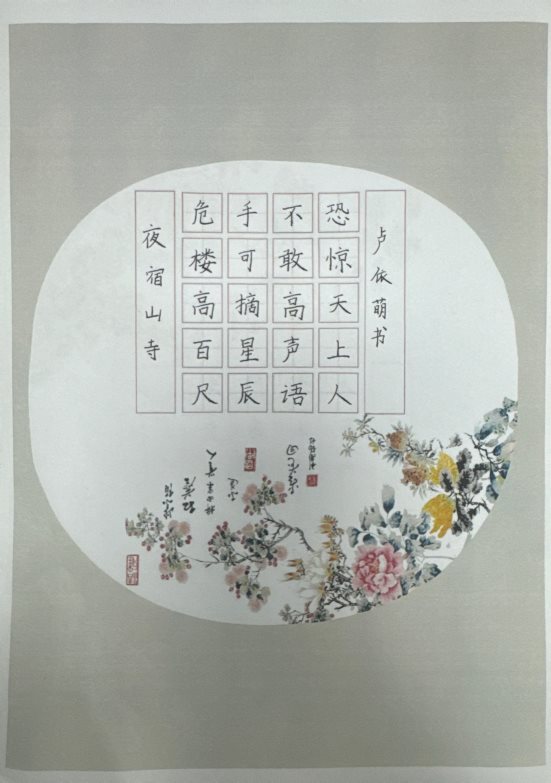 夜宿山寺
危楼高百尺
手可摘星辰
不敢高声语
恐惊天上人
卢依萌书